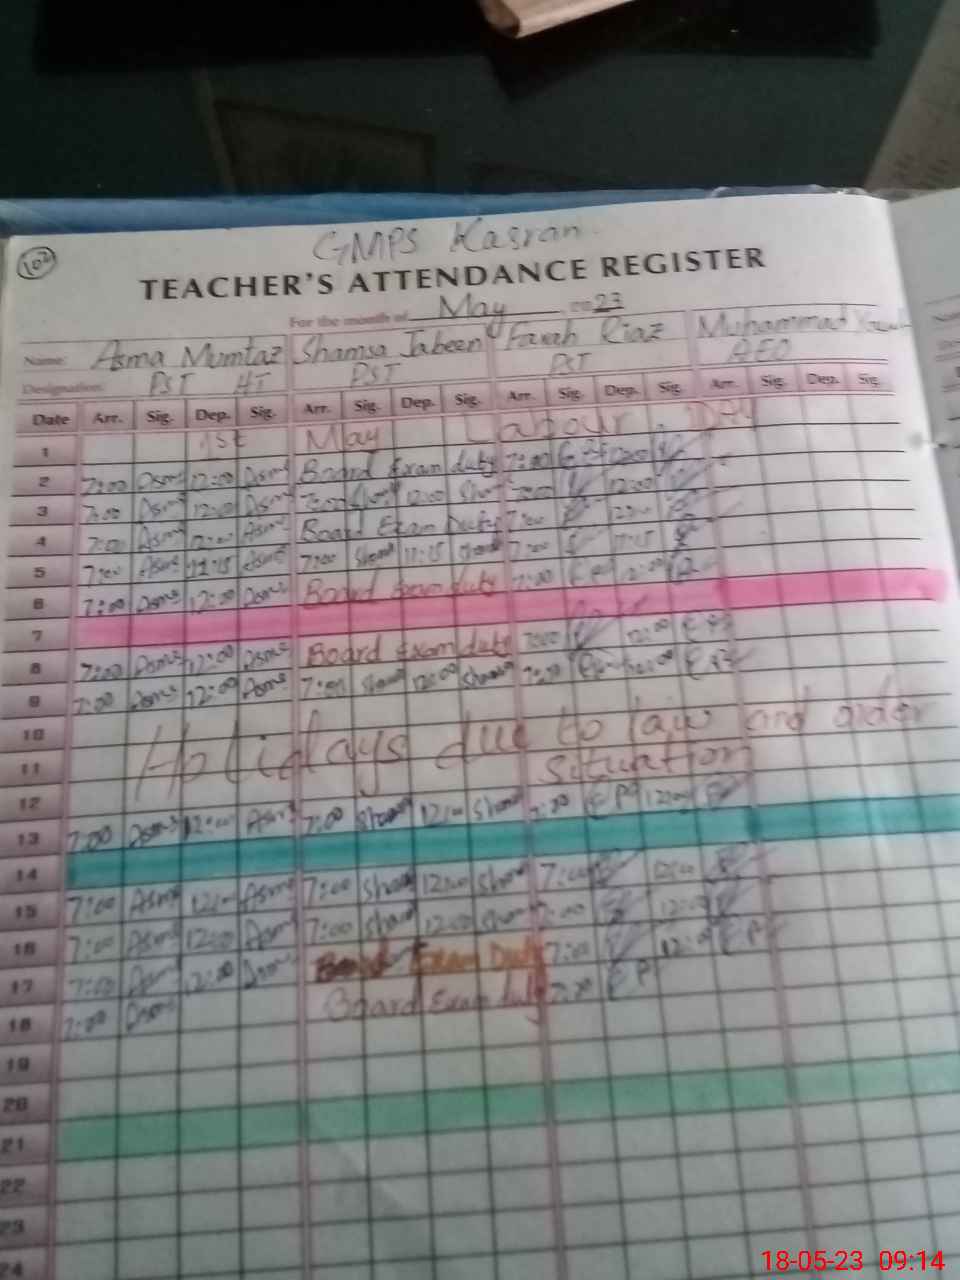 102
GMPS Kasran
TEACHER'S ATTENDANCE REGISTER
For the month of May 2023
Name: Asma Mumtaz Shamsa Jabeen Farah Riaz Muhammad
Designation: PST HT PST PST AEO
Date Arr. Sig. Dep. Sig. Arr. Sig. Dep. Sig. Arr. Sig. Dep. Sig. Arr. Sig. Dep. Sig.
1 1st May Labour DAY
2 7:00 Asma 12:00 Asma Board Exam duty 7:00 12:00
3 7:00 Asma 12:00 Asma 7:00 Sham 12:00 Sham 7:00 12:00
4 7:00 Asma 12:00 Asma Board Exam Duty 7:00
5 7:00 Asma 11:15 Asma 7:00 Sham 11:15 Sham 7:00 11:15
6 7:00 Asma 12:00 Asma Board Exam duty 7:00 12:00
7
8 7:00 Asma 12:00 Asma Board Exam duty 7:00 12:00
9 7:00 Asma 12:00 Asma 7:00 Sham 12:00 Sham 7:00 12:00
10 Holidays due to law and order
11 situation
12
13 7:00 Asma 12:00 Asma 7:00 Sham 12:00 Sham 7:00 12:00
14
15 7:00 Asma 12:00 Asma 7:00 Sham 12:00 Sham 7:00 12:00
16 7:00 Asma 12:00 Asma 7:00 Sham 12:00 Sham 7:00 12:00
17 7:00 Asma 12:00 Asma Board Exam Duty 7:00 12:00
18 7:00 Asma Board Exam duty 7:00
19
20
21
22
23
24
18-05-23 09:14